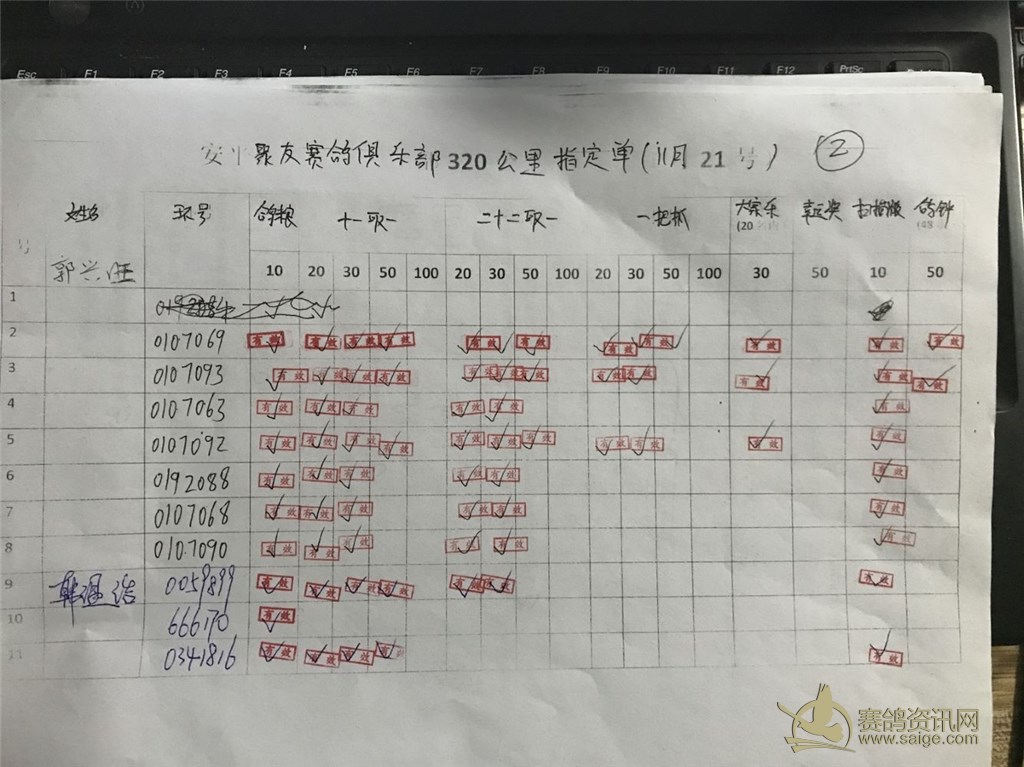 Esc F1 F2 F3 F4 F5 F6 F7 F8 F9 F10 F11 F12 PrtSc
安平聚友赛鸽俱乐部320公里指定单(11月21号) ②
姓名 环号 合车粮 十一取一 二十二取一 一把抓 大家乐 幸运奖 扫描被 鸽钟
号 (20 (48
郭兴旺 10 20 30 50 100 20 30 50 100 20 30 50 100 30 50 10 50
1
2 0107069 有效 有效 有效 有效 有效 有效 有效 有效 有效 有效 有效
3 0107093 有效 有效 有效 有效 有效 有效 有效 有效 有效 有效 有效 有效
4 0107063 有效 有效 有效 有效 有效 有效
5 0107092 有效 有效 有效 有效 有效 有效 有效 有效 有效 有效 有效
6 0192088 有效 有效 有效 有效 有效 有效
7 0107068 有效 有效 有效 有效 有效 有效
8 0107090 有效 有效 有效 有效 有效 有效
9 0059899 有效 有效 有效 有效 有效 有效 有效
10 666170 有效
11 0341816 有效 有效 有效 有效 有效
赛鸽资讯网
www.saige.com